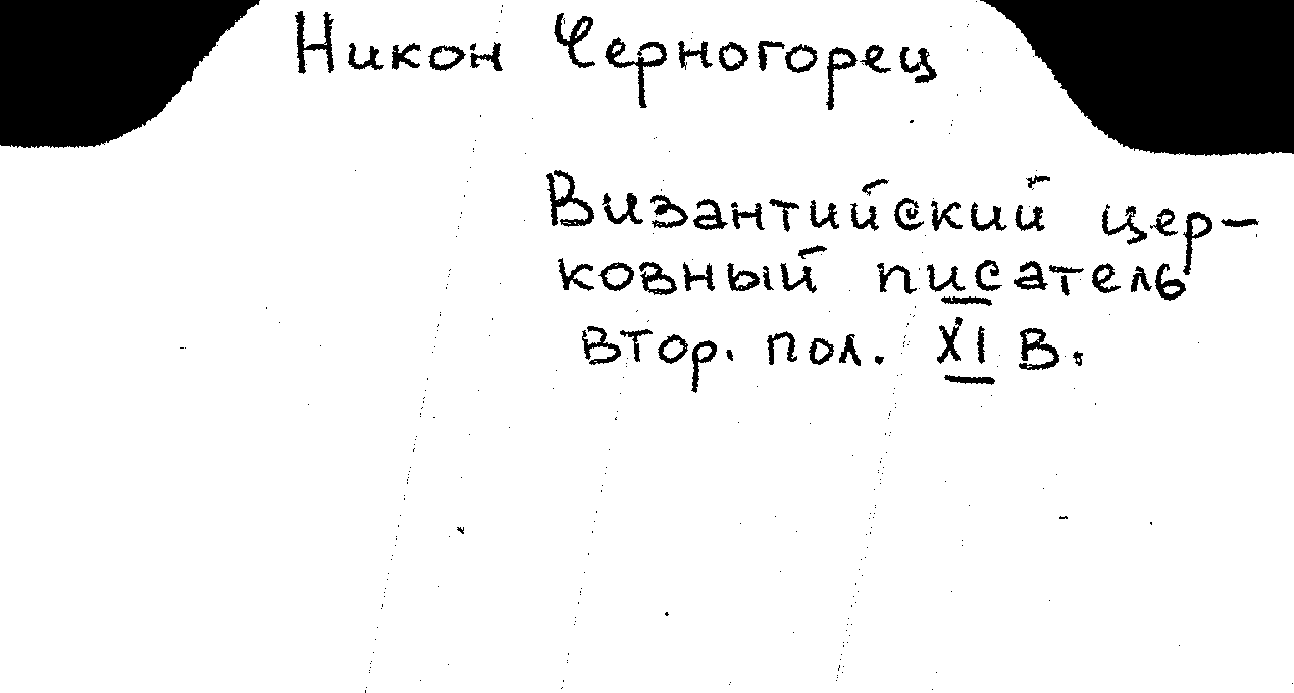 Никон Черногорец
Византийский цер-
ковный писатель
втор. пол. XI в.